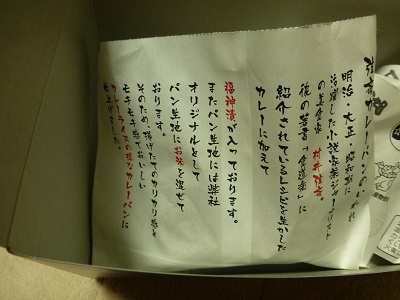 明治・大正・昭和期に
活躍した小説家兼ジャーナリスト
の美食家 村井弦斎
彼の著書「食道楽」に
紹介されているレシピを生かした
カレーに加えて
福神漬が入っております。
またパン生地には弊社
オリジナルとして
パン生地にお米を混ぜて
おります。
そのため、揚げたてのカリカリ感と
モチモチ感でおいしい
カレーライスの様なカレーパンに
仕上げました。